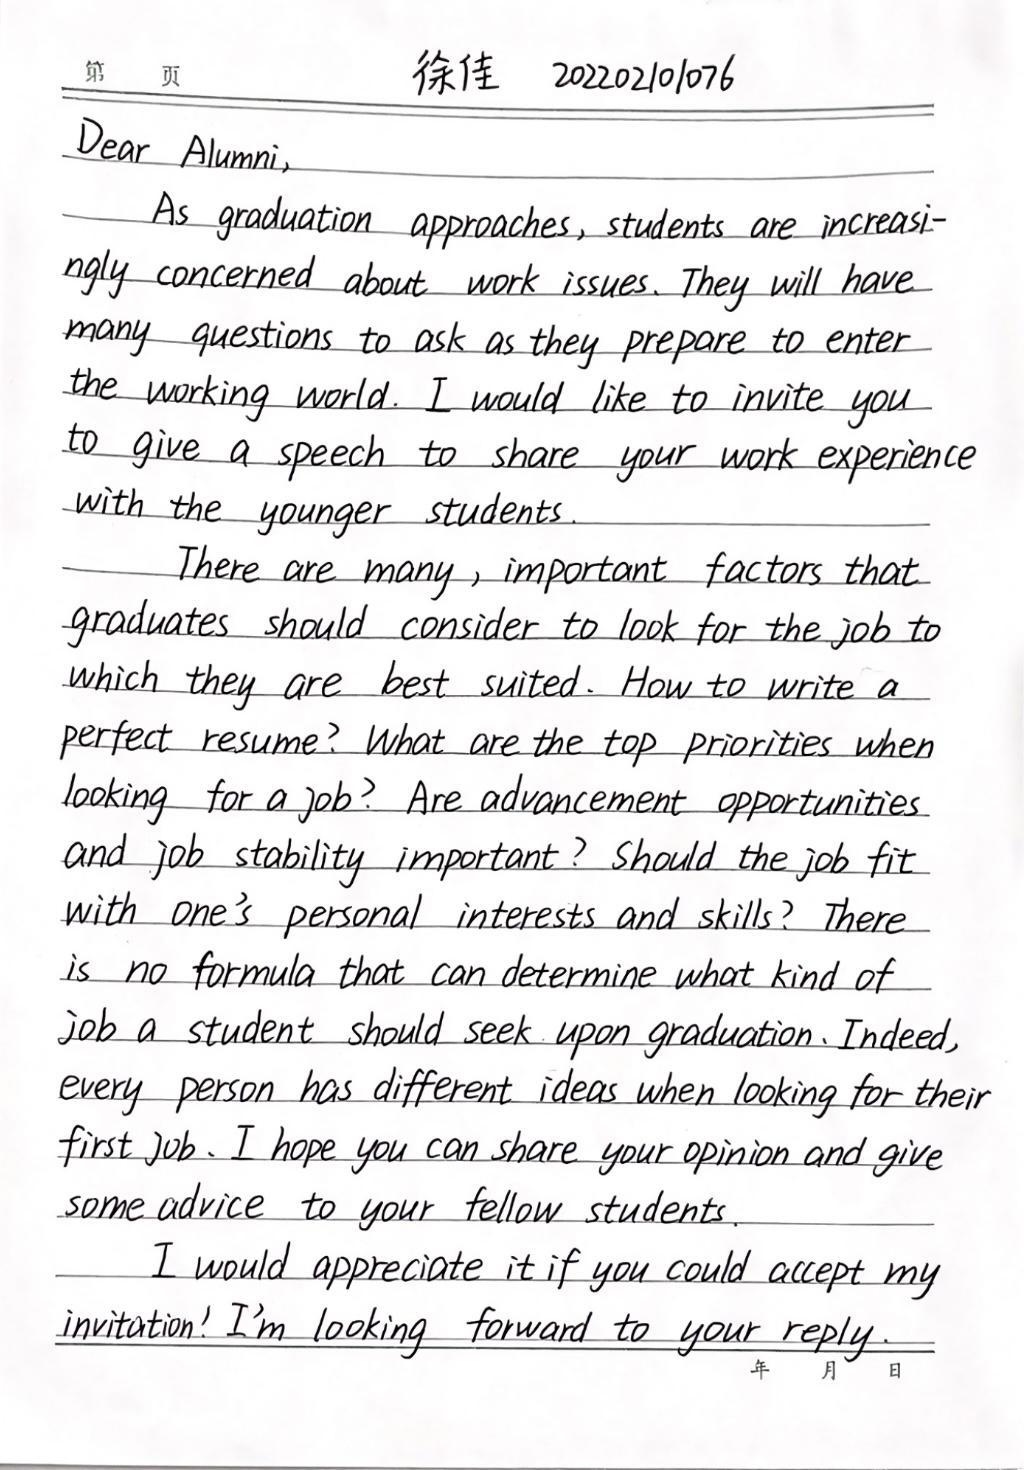 第 页 徐佳 202202101076
Dear Alumni,
As graduation approaches, students are increasi-
ngly concerned about work issues. They will have
many questions to ask as they prepare to enter
the working world. I would like to invite you
to give a speech to share your work experience
with the younger students.
There are many, important factors that
graduates should consider to look for the job to
which they are best suited. How to write a
perfect resume? What are the top priorities when
looking for a job? Are advancement opportunities
and job stability important? Should the job fit
with one's personal interests and skills? There
is no formula that can determine what kind of
job a student should seek upon graduation. Indeed,
every person has different ideas when looking for their
first job. I hope you can share your opinion and give
some advice to your fellow students.
I would appreciate it if you could accept my
invitation! I'm looking forward to your reply.
年 月 日